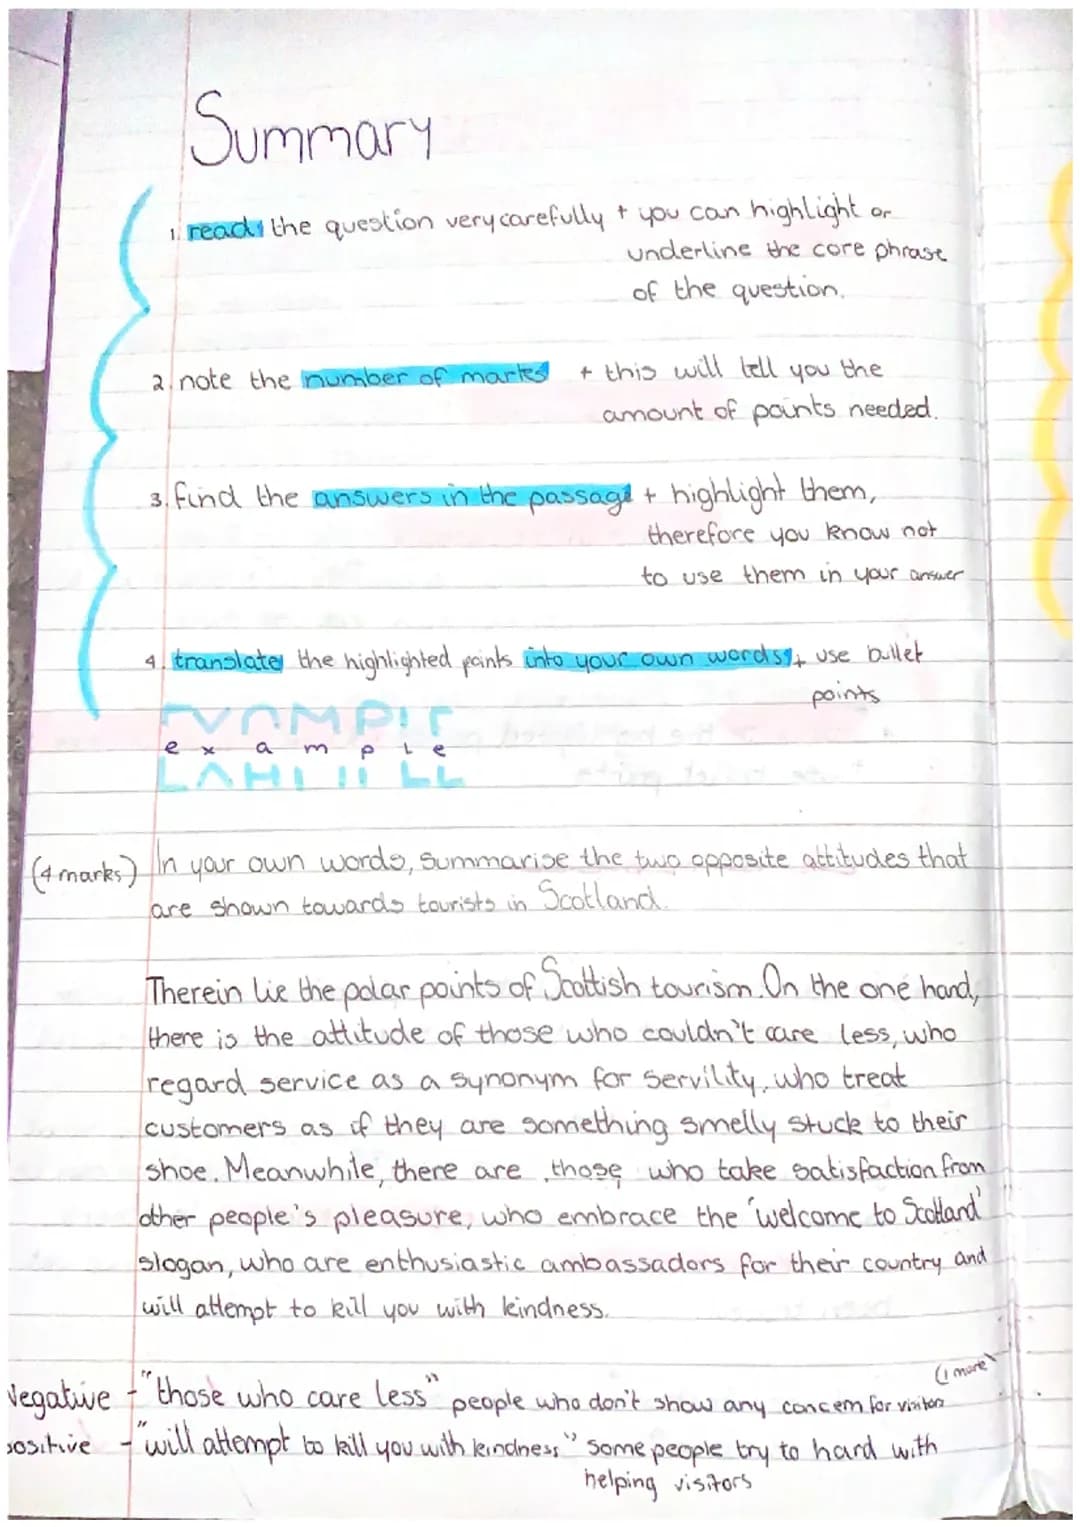 Summary
1. reads the question very carefully + you can highlight or
underline the core phrase
of the question.
2. note the number of marks + this will tell you the
amount of points needed.
3. find the answers in the passage + highlight them,
therefore you know not
to use them in your answer
4. translate the highlighted points into your own words + use bullet
points
example
(4 marks) In your own words, summarise the two opposite attitudes that
are shown towards tourists in Scotland.
Therein lie the polar points of Scottish tourism. On the one hand,
there is the attitude of those who couldn't care less, who
regard service as a synonym for servility, who treat
customers as if they are something smelly stuck to their
shoe. Meanwhile, there are those who take satisfaction from
other people's pleasure, who embrace the 'welcome to Scotland'
slogan, who are enthusiastic ambassadors for their country and
will attempt to kill you with kindness.
(1 more)
Negative - "those who care less" people who don't show any concern for visitors
positive - "will attempt to kill you with kindness" some people try to hard with
helping visitors